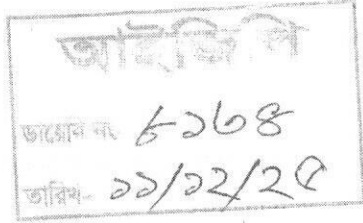 আইজিপি
ডায়েরি নং ৮১৬৪
তারিখ- ১১/১২/২৫